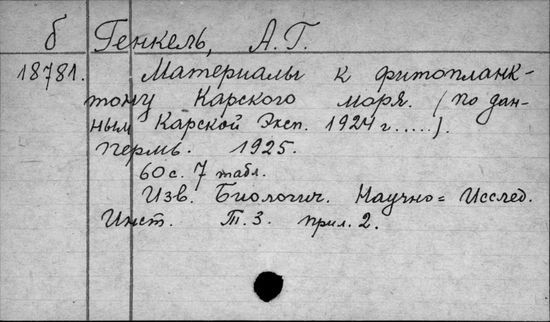 б Генкель, А. Г.
18781. Материалы к фитопланк-
тону Карского моря. (по дан-
ным Карской Эксп. 1924 г.....).
Пермь. 1925.
60 с. 7 табл.
Изв. Биологич. Научно= Исслед.
Инст. Т. 3. прил. 2.